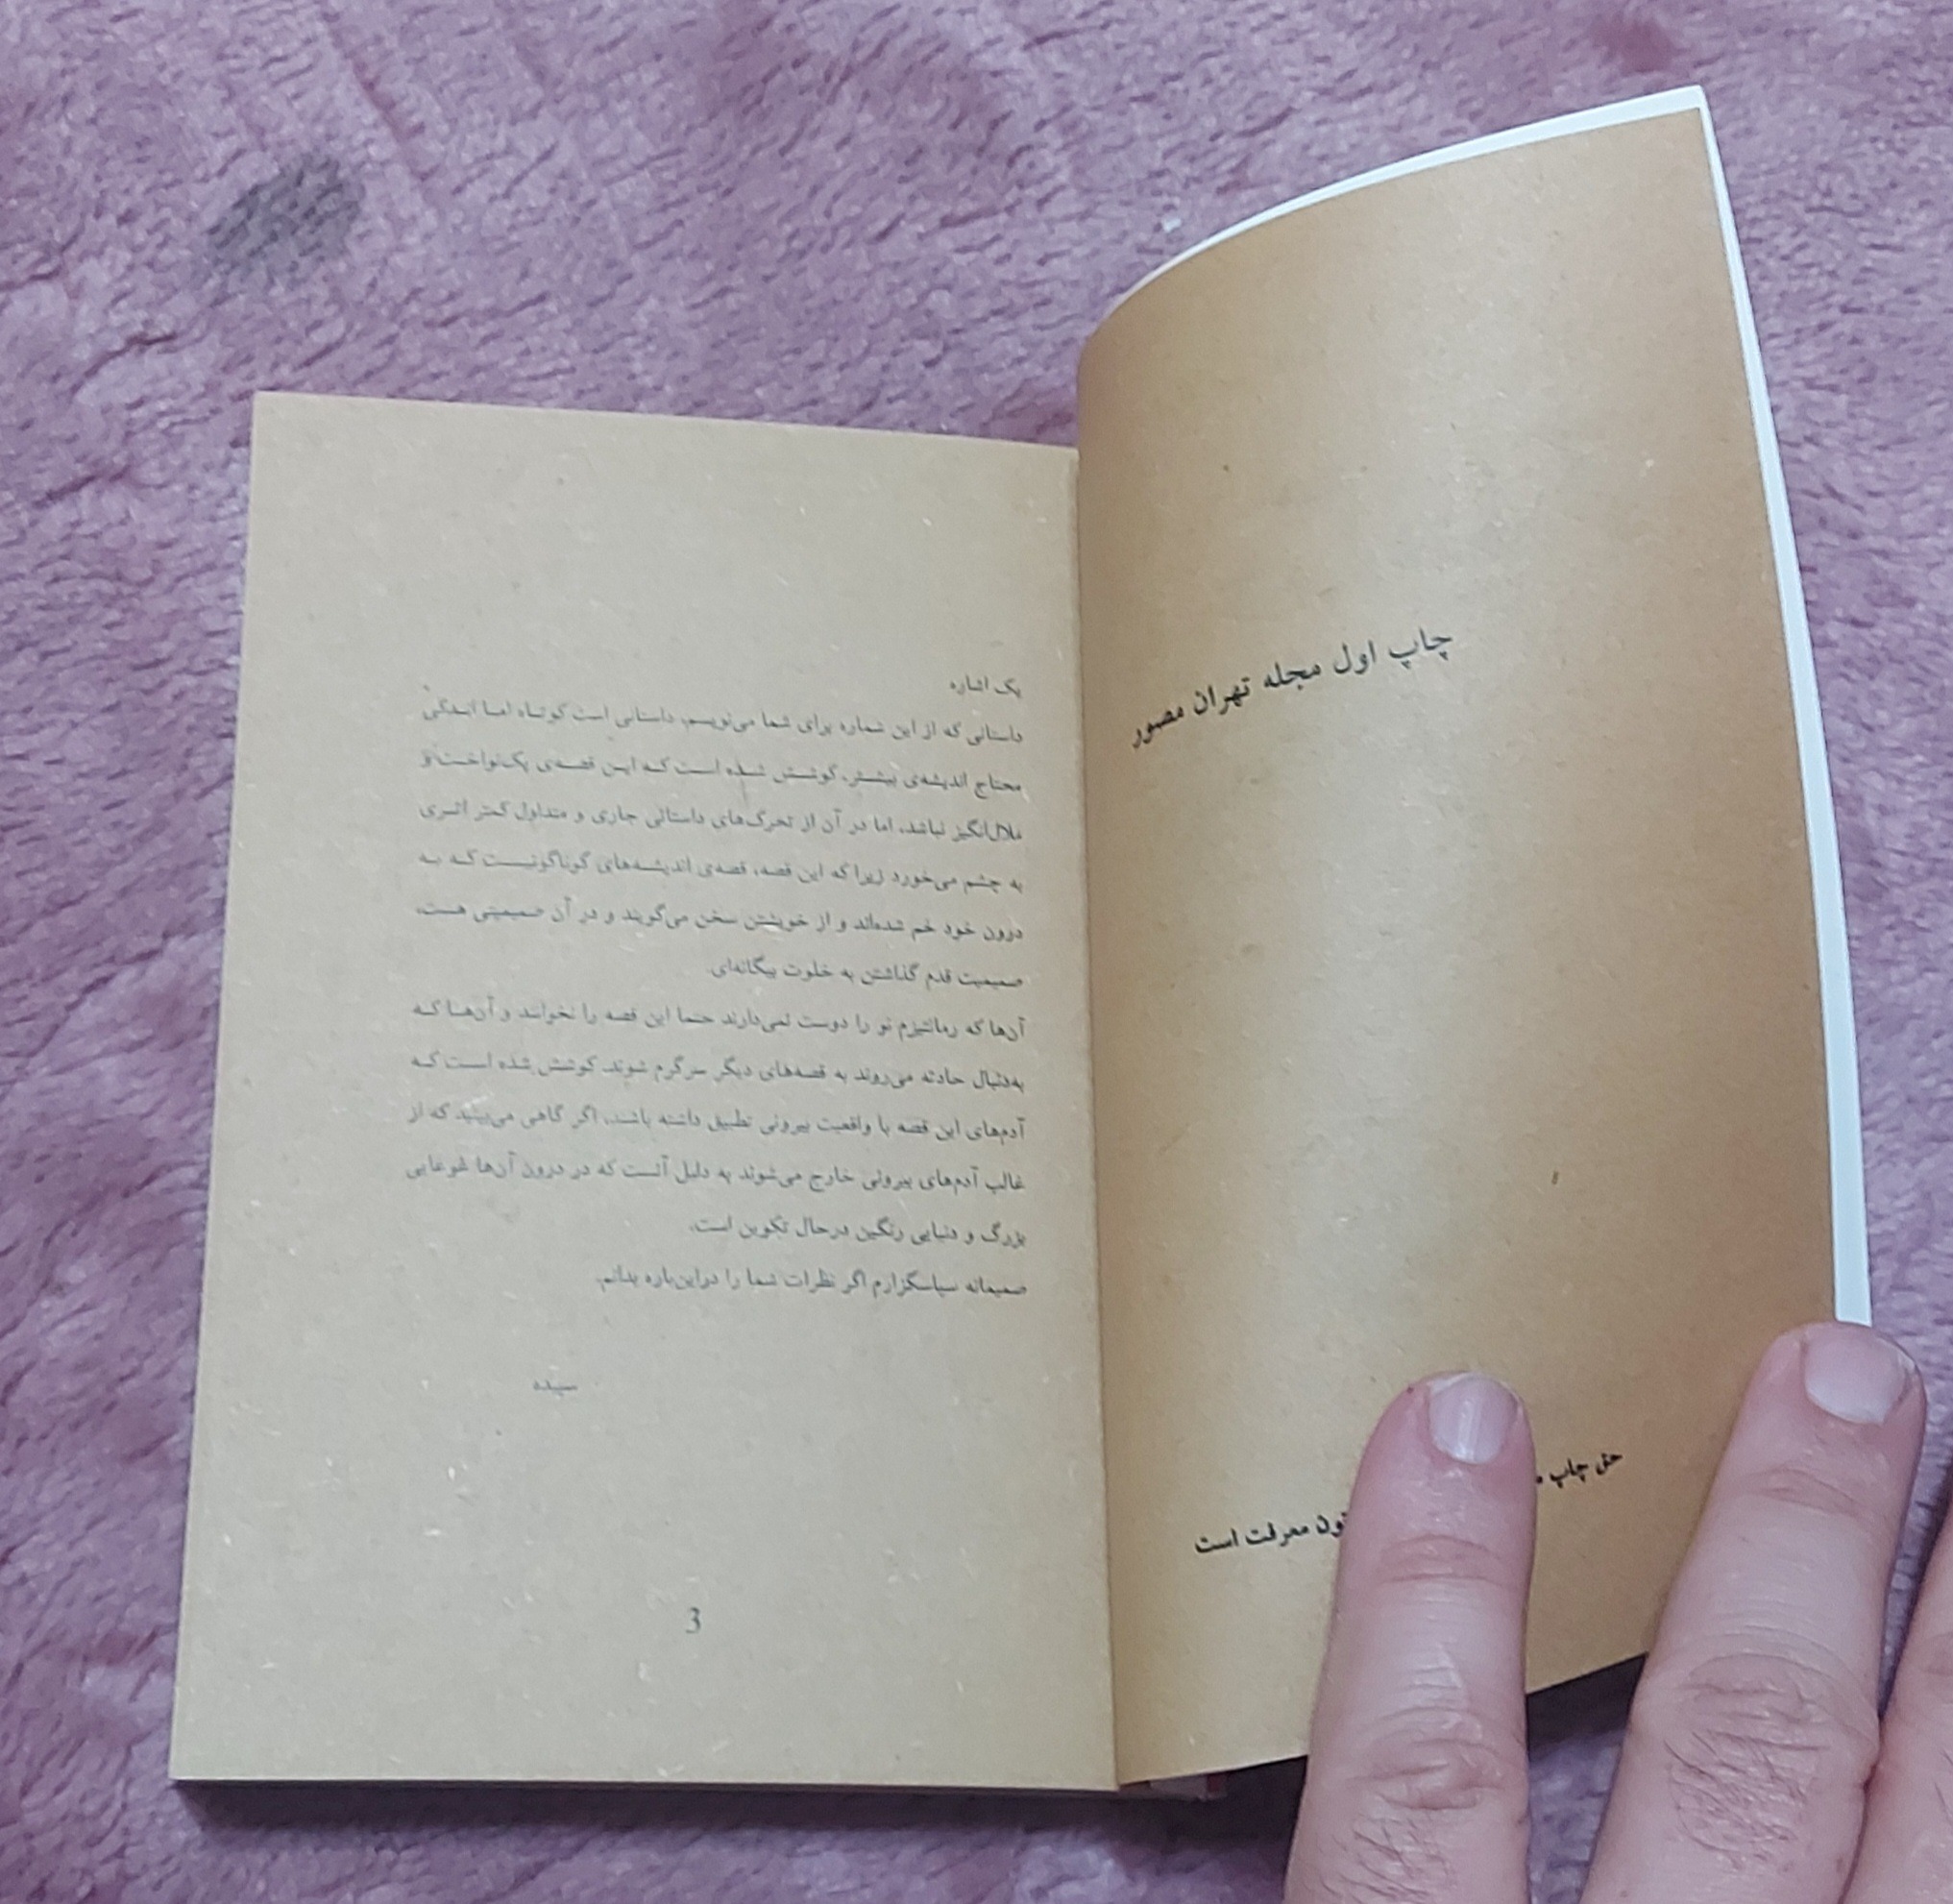 چاپ اول مجله تهران مصور
حق چاپ
معرفت است
یک اشاره
داستانی که از این شماره برای شما می‌نویسم، داستانی است کوتاه اما اندکی
محتاج اندیشه‌ی بیشتر. کوشش شده است که این قصه‌ی یک‌نواخت و
ملال‌انگیز نباشد، اما در آن از تحرک‌های داستانی جاری و متداول کمتر اثری
به چشم می‌خورد زیرا که این قصه، قصه‌ی اندیشه‌های گوناگونیست که به
درون خود خم شده‌اند و از خویشتن سخن می‌گویند و در آن صمیمیتی هست،
صمیمیت قدم گذاشتن به خلوت بیگانه‌ای.
آن‌ها که رمانتیزم نو را دوست نمی‌دارند حتما این قصه را نخوانند و آن‌ها که
به‌دنبال حادثه می‌روند به قصه‌های دیگر سرگرم شوند. کوشش شده است که
آدم‌های این قصه با واقعیت بیرونی تطبیق داشته باشند، اگر گاهی می‌بینید که از
غالب آدم‌های بیرونی خارج می‌شوند به دلیل آنست که در درون آن‌ها غوغایی
بزرگ و دنیایی رنگین درحال تکوین است.
صمیمانه سپاسگزارم اگر نظرات شما را دراین‌باره بدانم.
سپیده
3